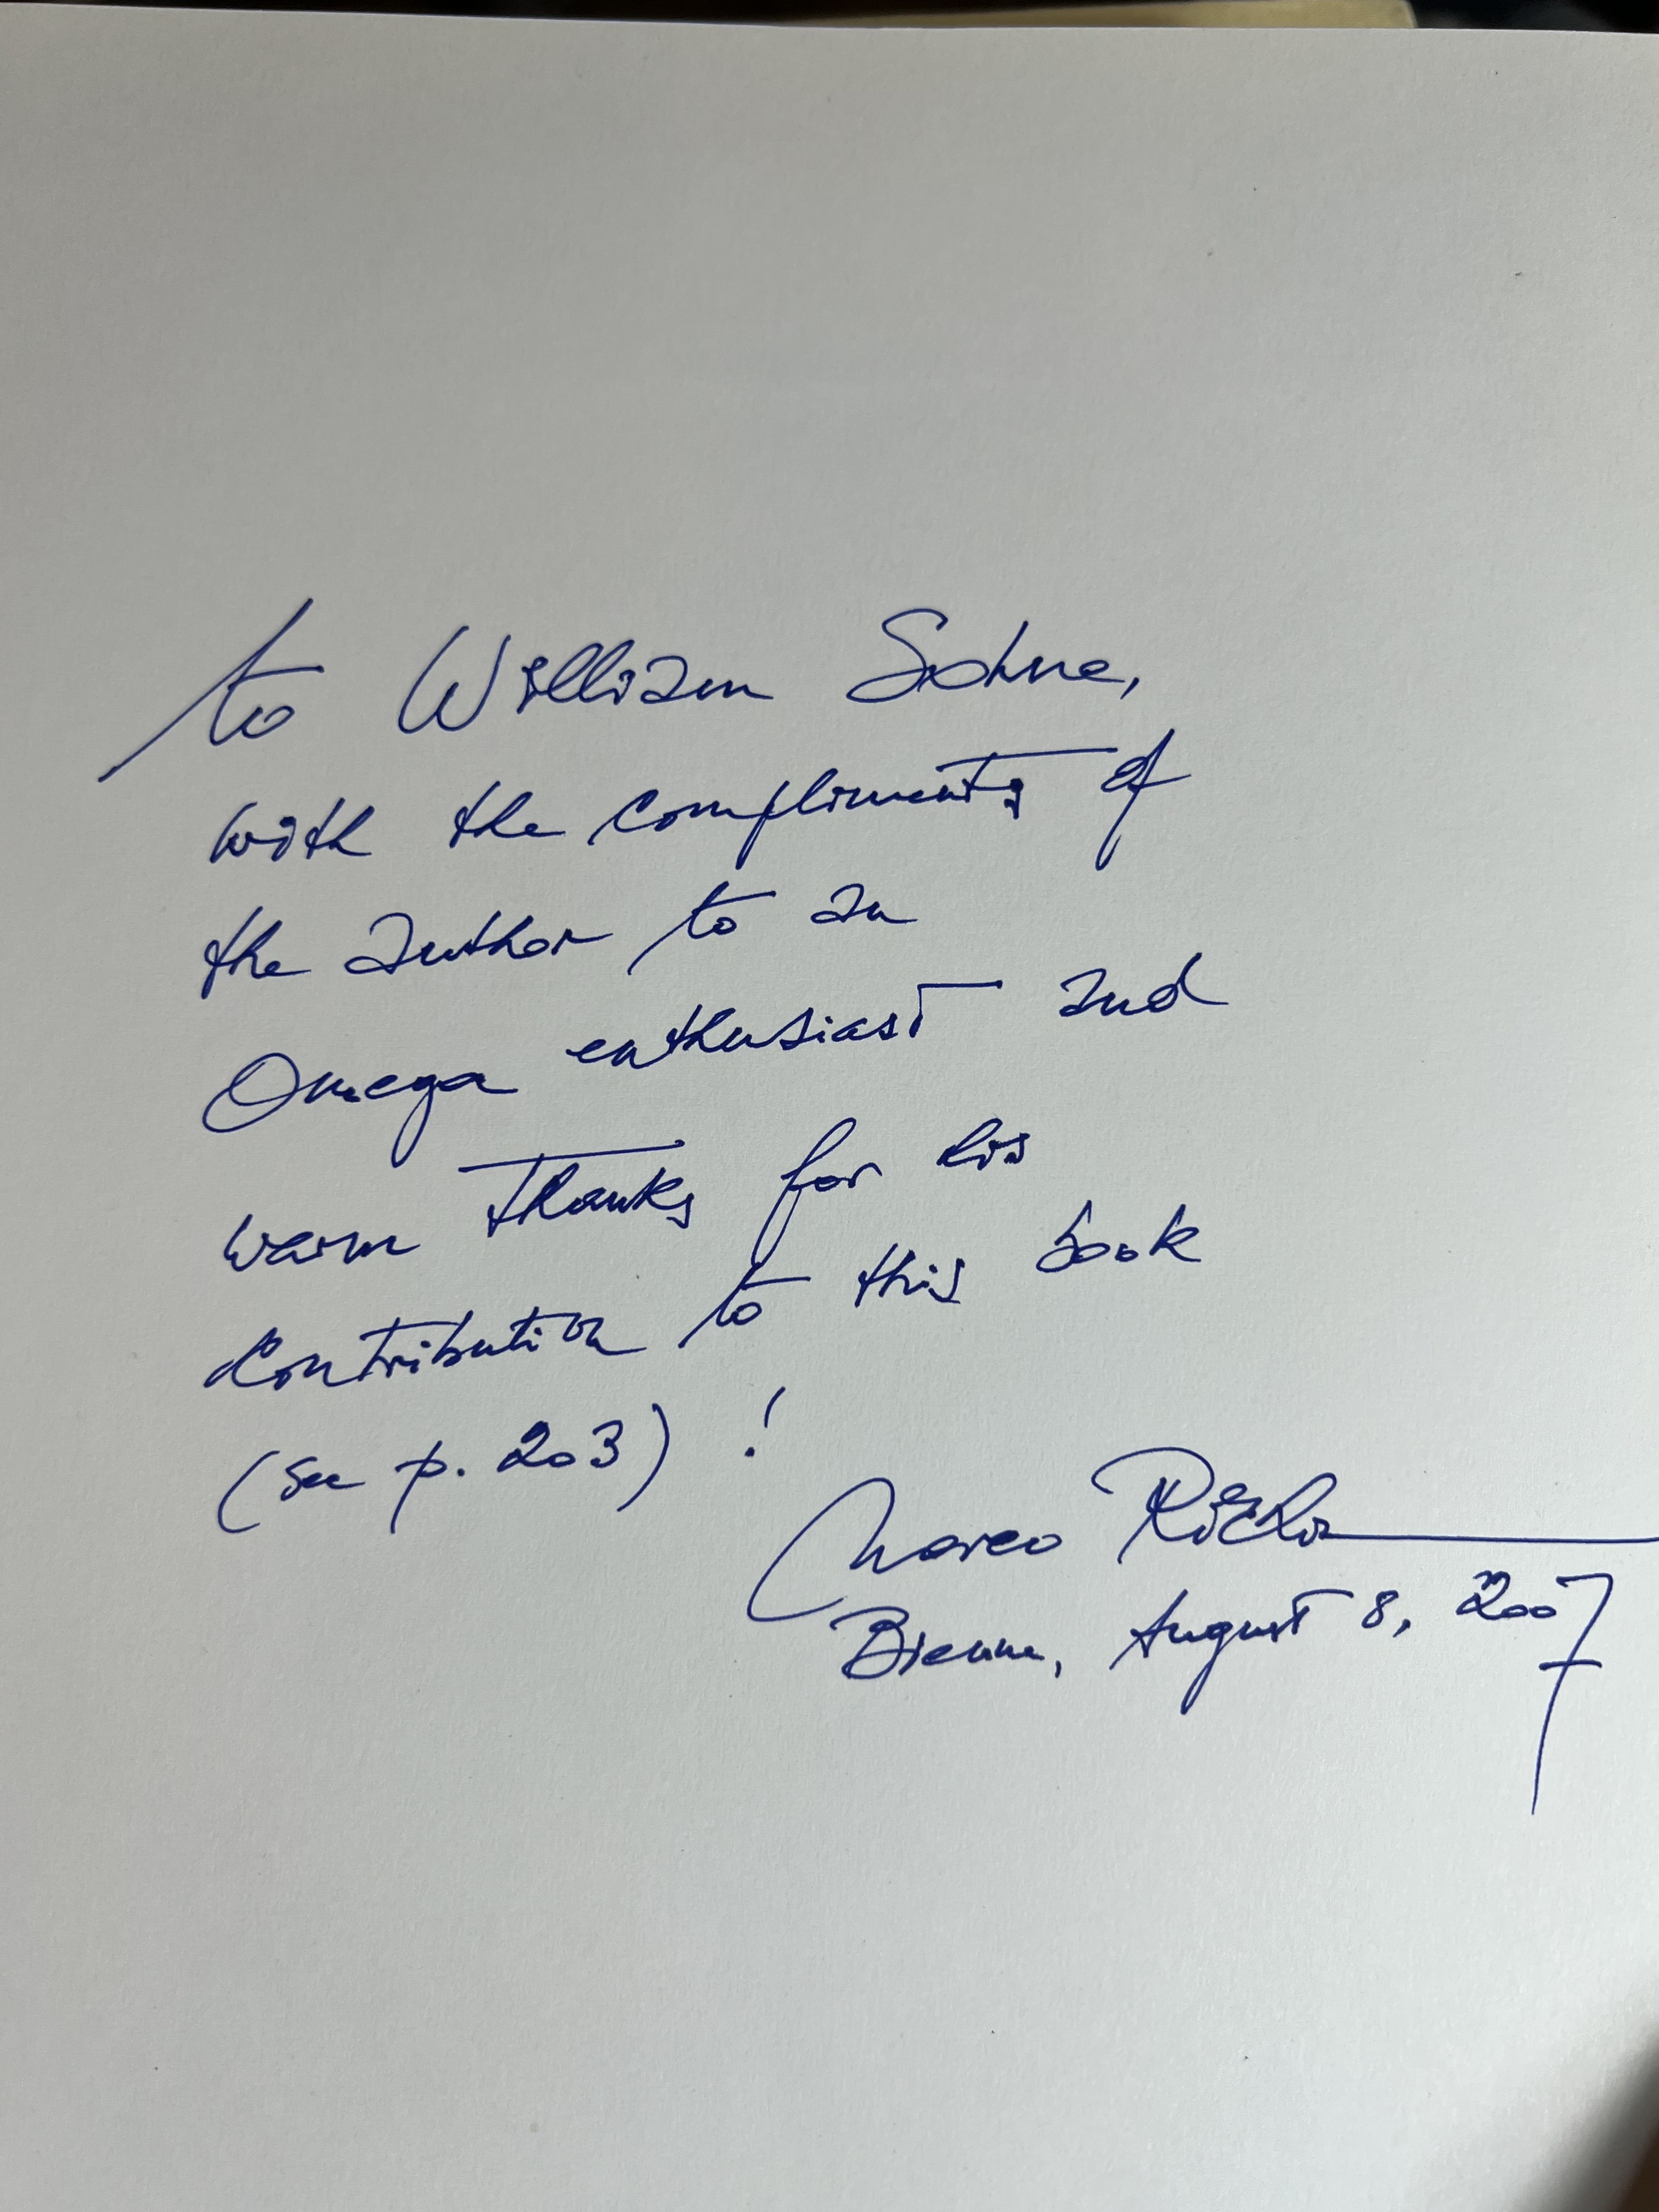 to William Sohne,
with the compliments of
the author to an
Omega enthusiast and
warm thanks for his
contribution to this book
(see p. 203) !
Marco Richon
Bienne, August 8, 2007